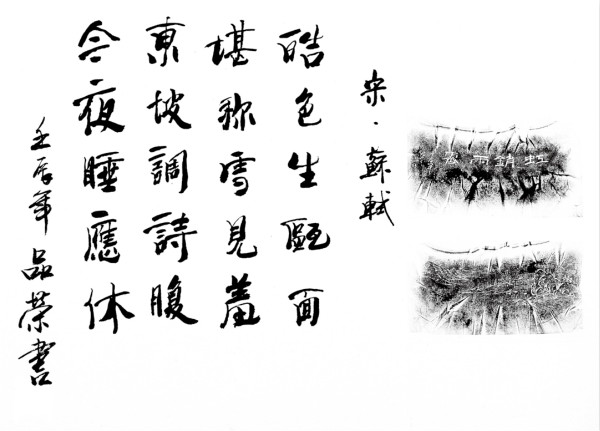 虹銷雨霽
宋·蘇軾
皓色生甌面
堪称雪見羞
東坡調詩腹
今夜睡應体
壬辰年 品荣書